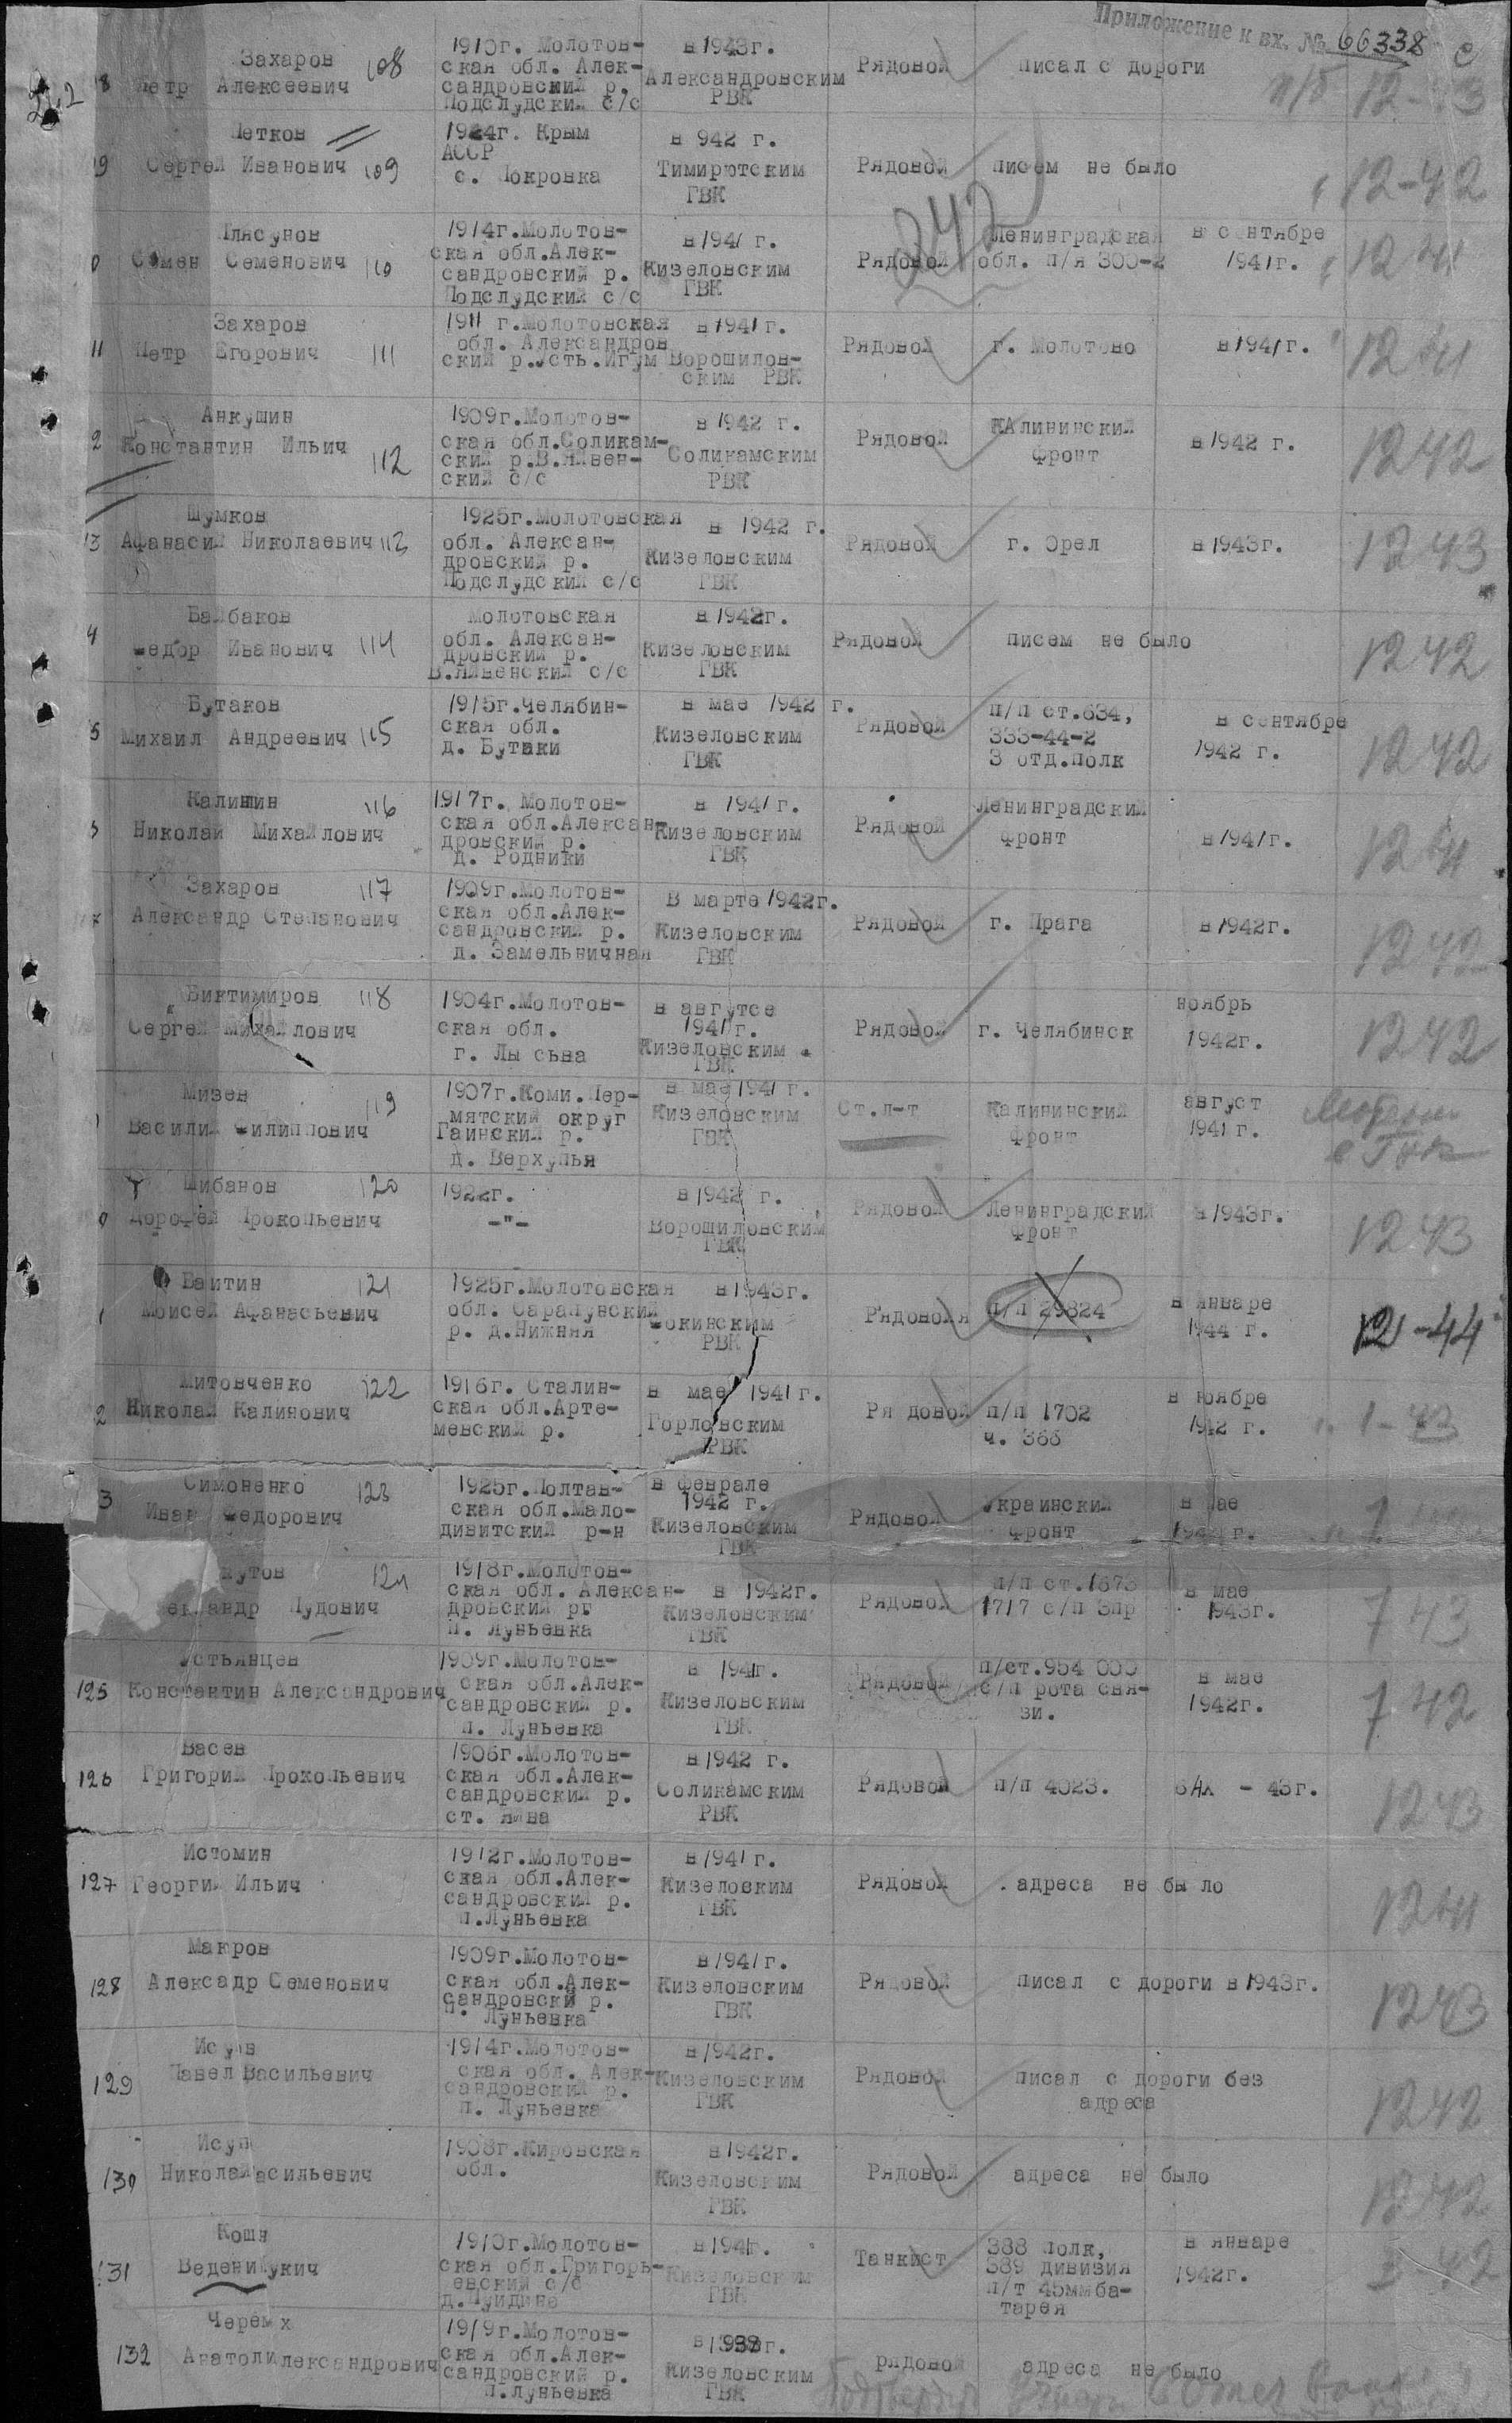 Приложение к вх. № 66338 с
Захаров
Петр Алексеевич 108
1910г. Молотов-
ская обл. Алек-
сандровский р.
Подслудский с/с
в 1943г.
Александровским
РВК
Рядовой
писал с дороги
п/б 12-43
Петков
Сергей Иванович 109
1924г. Крым
АССР
с. Покровка
в 942 г.
Тимирютским
ГВК
Рядовой
писем не было
12-42
242
Плясунов
Семен Семенович 110
1914г.Молотов-
ская обл.Алек-
сандровский р.
Подслудский с/с
в 1941 г.
Кизеловским
ГВК
Рядовой
Ленинградская
обл. п/я 300-2
в сентябре
1941г.
12 41
Захаров
Петр Егорович 111
1911 г.Молотовская
обл. Александров
ский р.Усть.Игум
в 1941 г.
Ворошилов-
ским РВК
Рядовой
г. Молотово
в 1941 г.
12 41
Анкушин
Константин Ильич 112
1909г.Молотов-
ская обл.Соликам-
ский р.В.Яйвен-
ский с/с
в 1942 г.
Соликамским
РВК
Рядовой
КАлининский
фронт
в 1942 г.
12 42
Шумков
Афанасий Николаевич 113
1925г.Молотовская
обл. Алексан-
дровский р.
Подслудский с/с
в 1942 г.
Кизеловским
ГВК
Рядовой
г. Орел
в 1943г.
12 43
Балбаков
Федор Иванович 114
Молотовская
обл. Алексан-
дровский р.
В.Яйвенский с/с
в 1942г.
Кизеловским
ГВК
Рядовой
писем не было
12 42
Бутаков
Михаил Андреевич 115
1915г.Челябин-
ская обл.
д. Бутаки
в мае 1942 г.
Кизеловским
ГВК
Рядовой
п/п ст.634,
333-44-2
3 отд.полк
в сентябре
1942 г.
12 42
Калинин 116
Николай Михайлович
1917г. Молотов-
ская обл.Алексан-
дровский р.
д. Родники
в 1941 г.
Кизеловским
ГВК
Рядовой
Ленинградский
фронт
в 1941г.
12 41
Захаров 117
Александр Степанович
1909г.Молотов-
ская обл.Алек-
сандровский р.
д. Замельничная
В марте 1942г.
Кизеловским
ГВК
Рядовой
г. Прага
в 1942г.
12 42
Биктимиров 118
Сергей Михайлович
1904г.Молотов-
ская обл.
г. Лы сьва
в авгутсе
1941г.
Кизеловским
ГВК
Рядовой
г. Челябинск
ноябрь
1942г.
12 42
Мизев 119
Василий Филиппович
1907г.Коми.Пер-
мятский округ
Гаинский р.
д. Верхулья
в мае 1941 г.
Кизеловским
ГВК
Ст.л-т
Калининский
фронт
август
1941 г.
Шибанов 120
Дорофей Прокопьевич
1922г.
-"-
в 1942 г.
Ворошиловским
ГВК
Рядовой
Ленинградский
фронт
в 1943г.
12 43
Ваитин 121
Моисей Афанасьевич
1925г.Молотовская
обл. Сарапунский
р. д.Нижняя
в 1943г.
Фокинским
РВК
Рядовойя
п/п 29824
в январе
1944 г.
12-44
Митовченко 122
Николай Калинович
1916г. Сталин-
ская обл.Арте-
мевский р.
в мае 1941г.
Горловским
РВК
Ря довой
п/п 1702
ч. 366
в ноябре
1942 г.
1-43
Симоненко 123
Иван Федорович
1925г.Полтав-
ская обл.Мало-
дивитский р-н
в феврале
1942 г.
Кизеловским
ГВК
Рядовой
Украинский
фронт
в мае
кутов 124
ександр Иудович
1918г.Молотов-
ская обл. Алексан-
дровский рг
п. Луньевка
в 1942г.
Кизеловским
ГВК
Рядовой
п/п ст.1673
1717 с/п 3пр
в мае
1943г.
7 43
125
Устьянцев
Константин Александрович
1909г.Молотов-
ская обл.Алек-
сандровский р.
п. Луньевка
в 1941г.
Кизеловским
ГВК
Рядовой
п/ст.954 000
с/п рота свя-
зи.
в мае
1942г.
7 42
126
Васев
Григорий Прокопьевич
1906г.Молотов-
ская обл.Алек-
сандровский р.
ст. Яйва
в 1942 г.
Соликамским
РВК
Рядовой
п/п 4023.
- 43г.
12 43
127
Истомин
Георгий Ильич
1912г.Молотов-
ская обл.Алек-
сандровский р.
п.Луньевка
в 1941 г.
Кизеловким
ГВК
Рядовой
.адреса не бы ло
12 41
128
Макров
Алексадр Семенович
1909г.Молотов-
ская обл.Алек-
сандровски р.
п. Луньевка
в 1941 г.
Кизеловским
ГВК
Рядовой
писал с дороги в 1943г.
12 43
129
Павел Васильевич
1914г.Молотов-
ская обл. Алек-
сандровский р.
п. Луньевка
в 1942г.
Кизеловским
ГВК
Рядовой
писал с дороги без
адреса
12 42
130
Исуп
Николай асильевич
1908г.Кировская
обл.
в 1942г.
Кизеловским
ГВК
Рядовой
адреса не было
12 42
131
Веденй укич
1910г.Молотов-
ская обл.Григорь-
евский с/с
в 1941г.
Кизеловским
ГВК
Танкист
388 полк,
389 дивизия
п/т 45мм ба-
тарея
в январе
1942г.
132
Черем х
Анатоли лександрович
1919г.Молотов-
ская обл.Алек-
сандровский р.
п.Луньевка
в 1939г.
Кизеловским
ГВК
рядовой
адреса не было